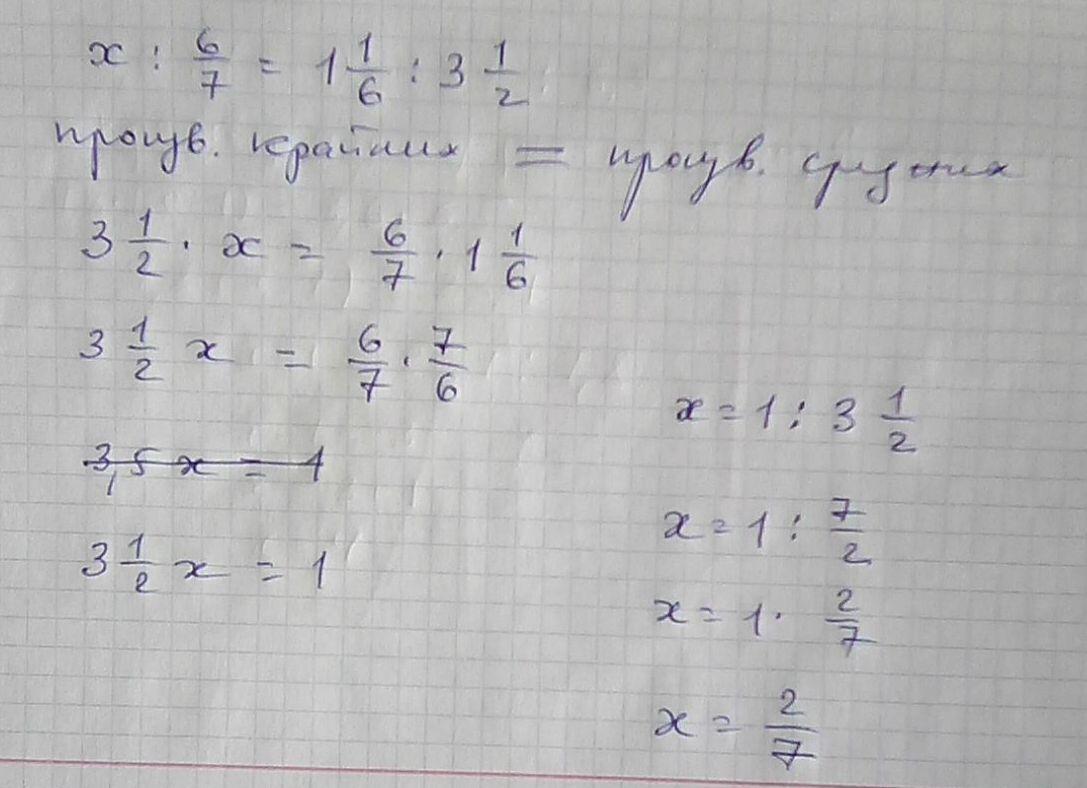 x : 6/7 = 1 1/6 : 3 1/2
произв. крайних = произв. средних
3 1/2 · x = 6/7 · 1 1/6
3 1/2 x = 6/7 · 7/6
3,5 x = 1
3 1/2 x = 1
x = 1 : 3 1/2
x = 1 : 7/2
x = 1 · 2/7
x = 2/7